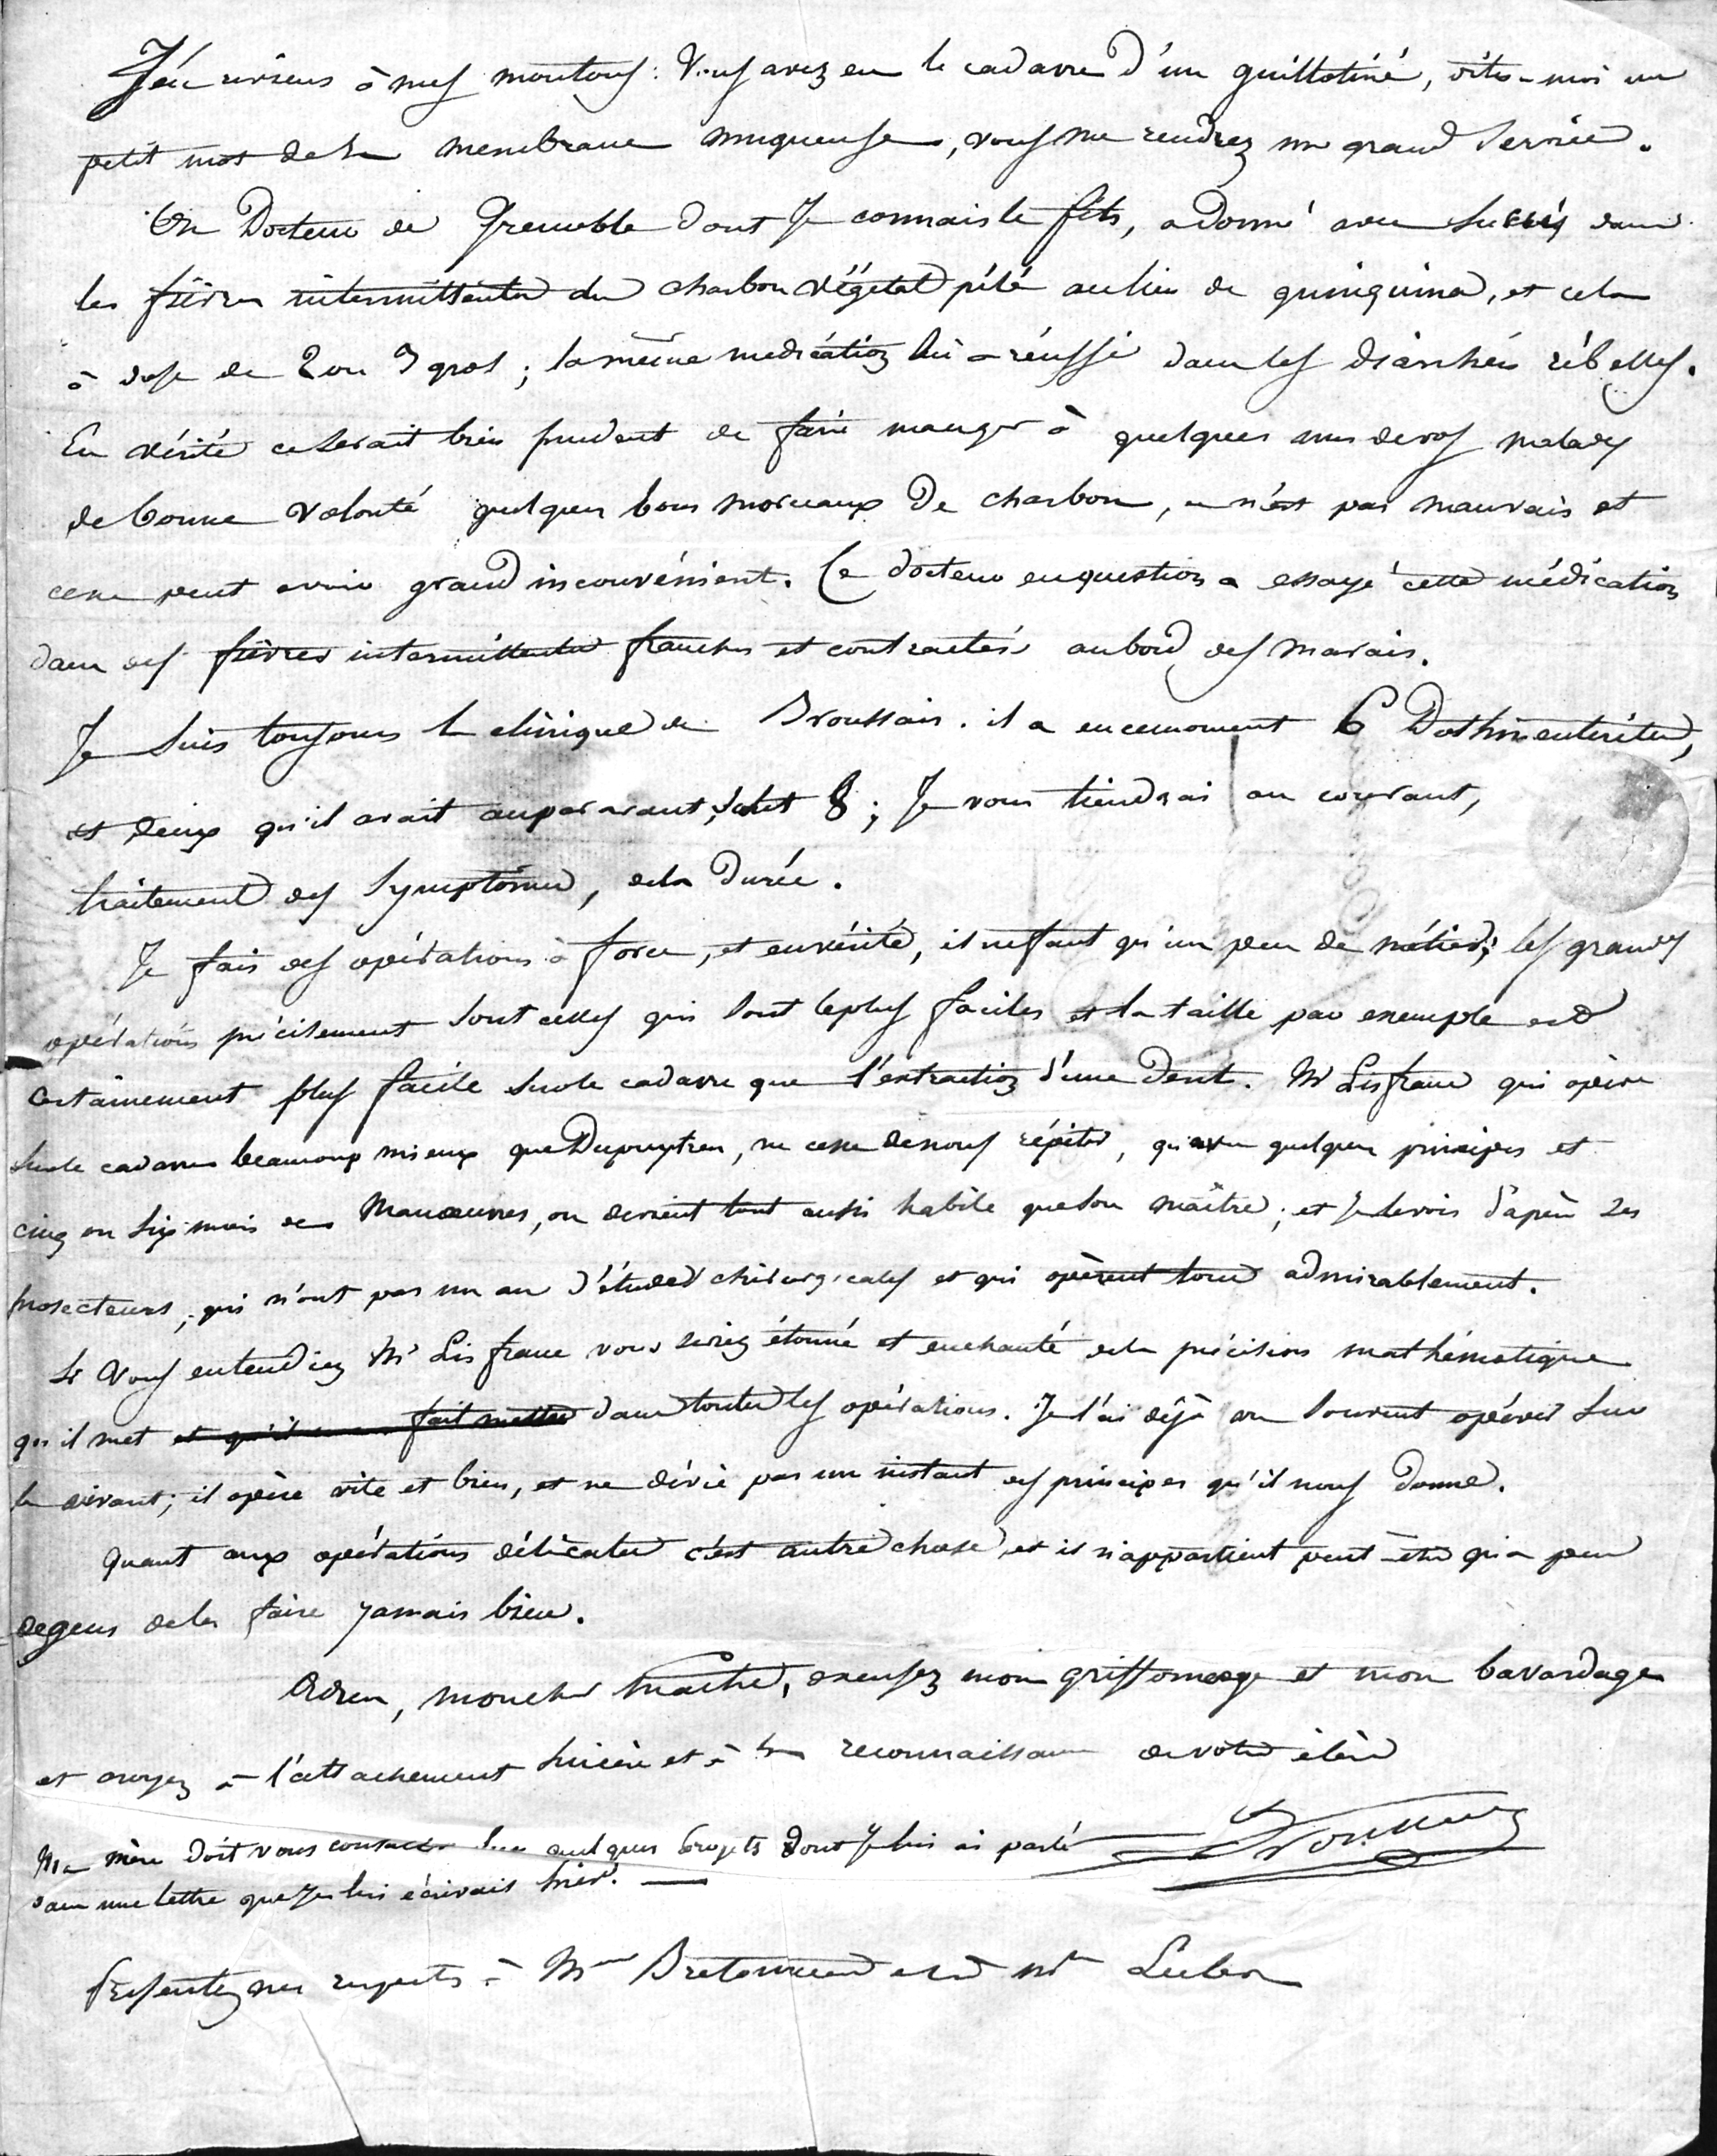 J'en reviens à mes moutons : Vous avez eu le cadavre d'un guillotiné, dites-moi un
petit mot de la membrane muqueuse, vous me rendrez un grand service.
Un Docteur de Grenoble dont Je connais le fils, a donné avec succès dans
les fièvres intermittentes du charbon végétal pilé au lieu de quinquina, et cela
à dose de 2 ou 3 gros ; la même médication lui a réussi dans les diarrhées rébelles.
En vérité ce serait bien prudent de faire manger à quelques uns de vos malades
de bonne volonté quelques bons morceaux de charbon, ce n'est pas mauvais et
cela ne peut avoir grand inconvénient. Ce docteur en question a essayé cette médication
dans des fièvres intermittentes franches et contractées au bord des marais.
Je suis toujours la clinique de Broussais. il a en ce moment 6 Dothinentérites,
et deux qu'il avait auparavant, c'est 8 ; Je vous tiendrai au courant,
traitement des symptômes, de la durée.
Je fais des opérations à force, et en vérité, il ne faut qu'un peu de métier ; les grandes
opérations précisément sont celles qui sont le plus faciles et la taille par exemple est
certainement plus facile sur le cadavre que l'extraction d'une dent. Mr Lisfranc qui opère
sur le cadavre beaucoup mieux que Dupuytren, ne cesse de nous répéter, qu'avec quelques principes et
cinq ou six mois de Manœuvres, on devient tout aussi habile que son maître ; et Je le vois d'après ses
prosecteurs, qui n'ont pas un an d'études chirurgicales et qui opèrent tous admirablement.
Si vous entendiez Mr Lisfranc vous seriez étonné et enchanté de la précision mathématique
qu'il met et qu'il fait mettre dans toutes les opérations. Je l'ai déjà vu souvent opérer sur
le vivant ; il opère vite et bien, et ne dévie pas un instant des principes qu'il nous donne.
Quant aux opérations délicates c'est autre chose, et il n'appartient peut-être qu'à peu
de gens de les faire jamais bien.
Adieu, mon cher maître, excusez mon griffonnage et mon bavardage
et croyez à l'attachement sincère et à la reconnaissance de votre élève
Ma mère doit vous consulter sur quelques projets dont Je lui ai parlé
dans une lettre que Je lui écrivais hier. —
Présentez mes respects à Mme Bretonneau et à Mr